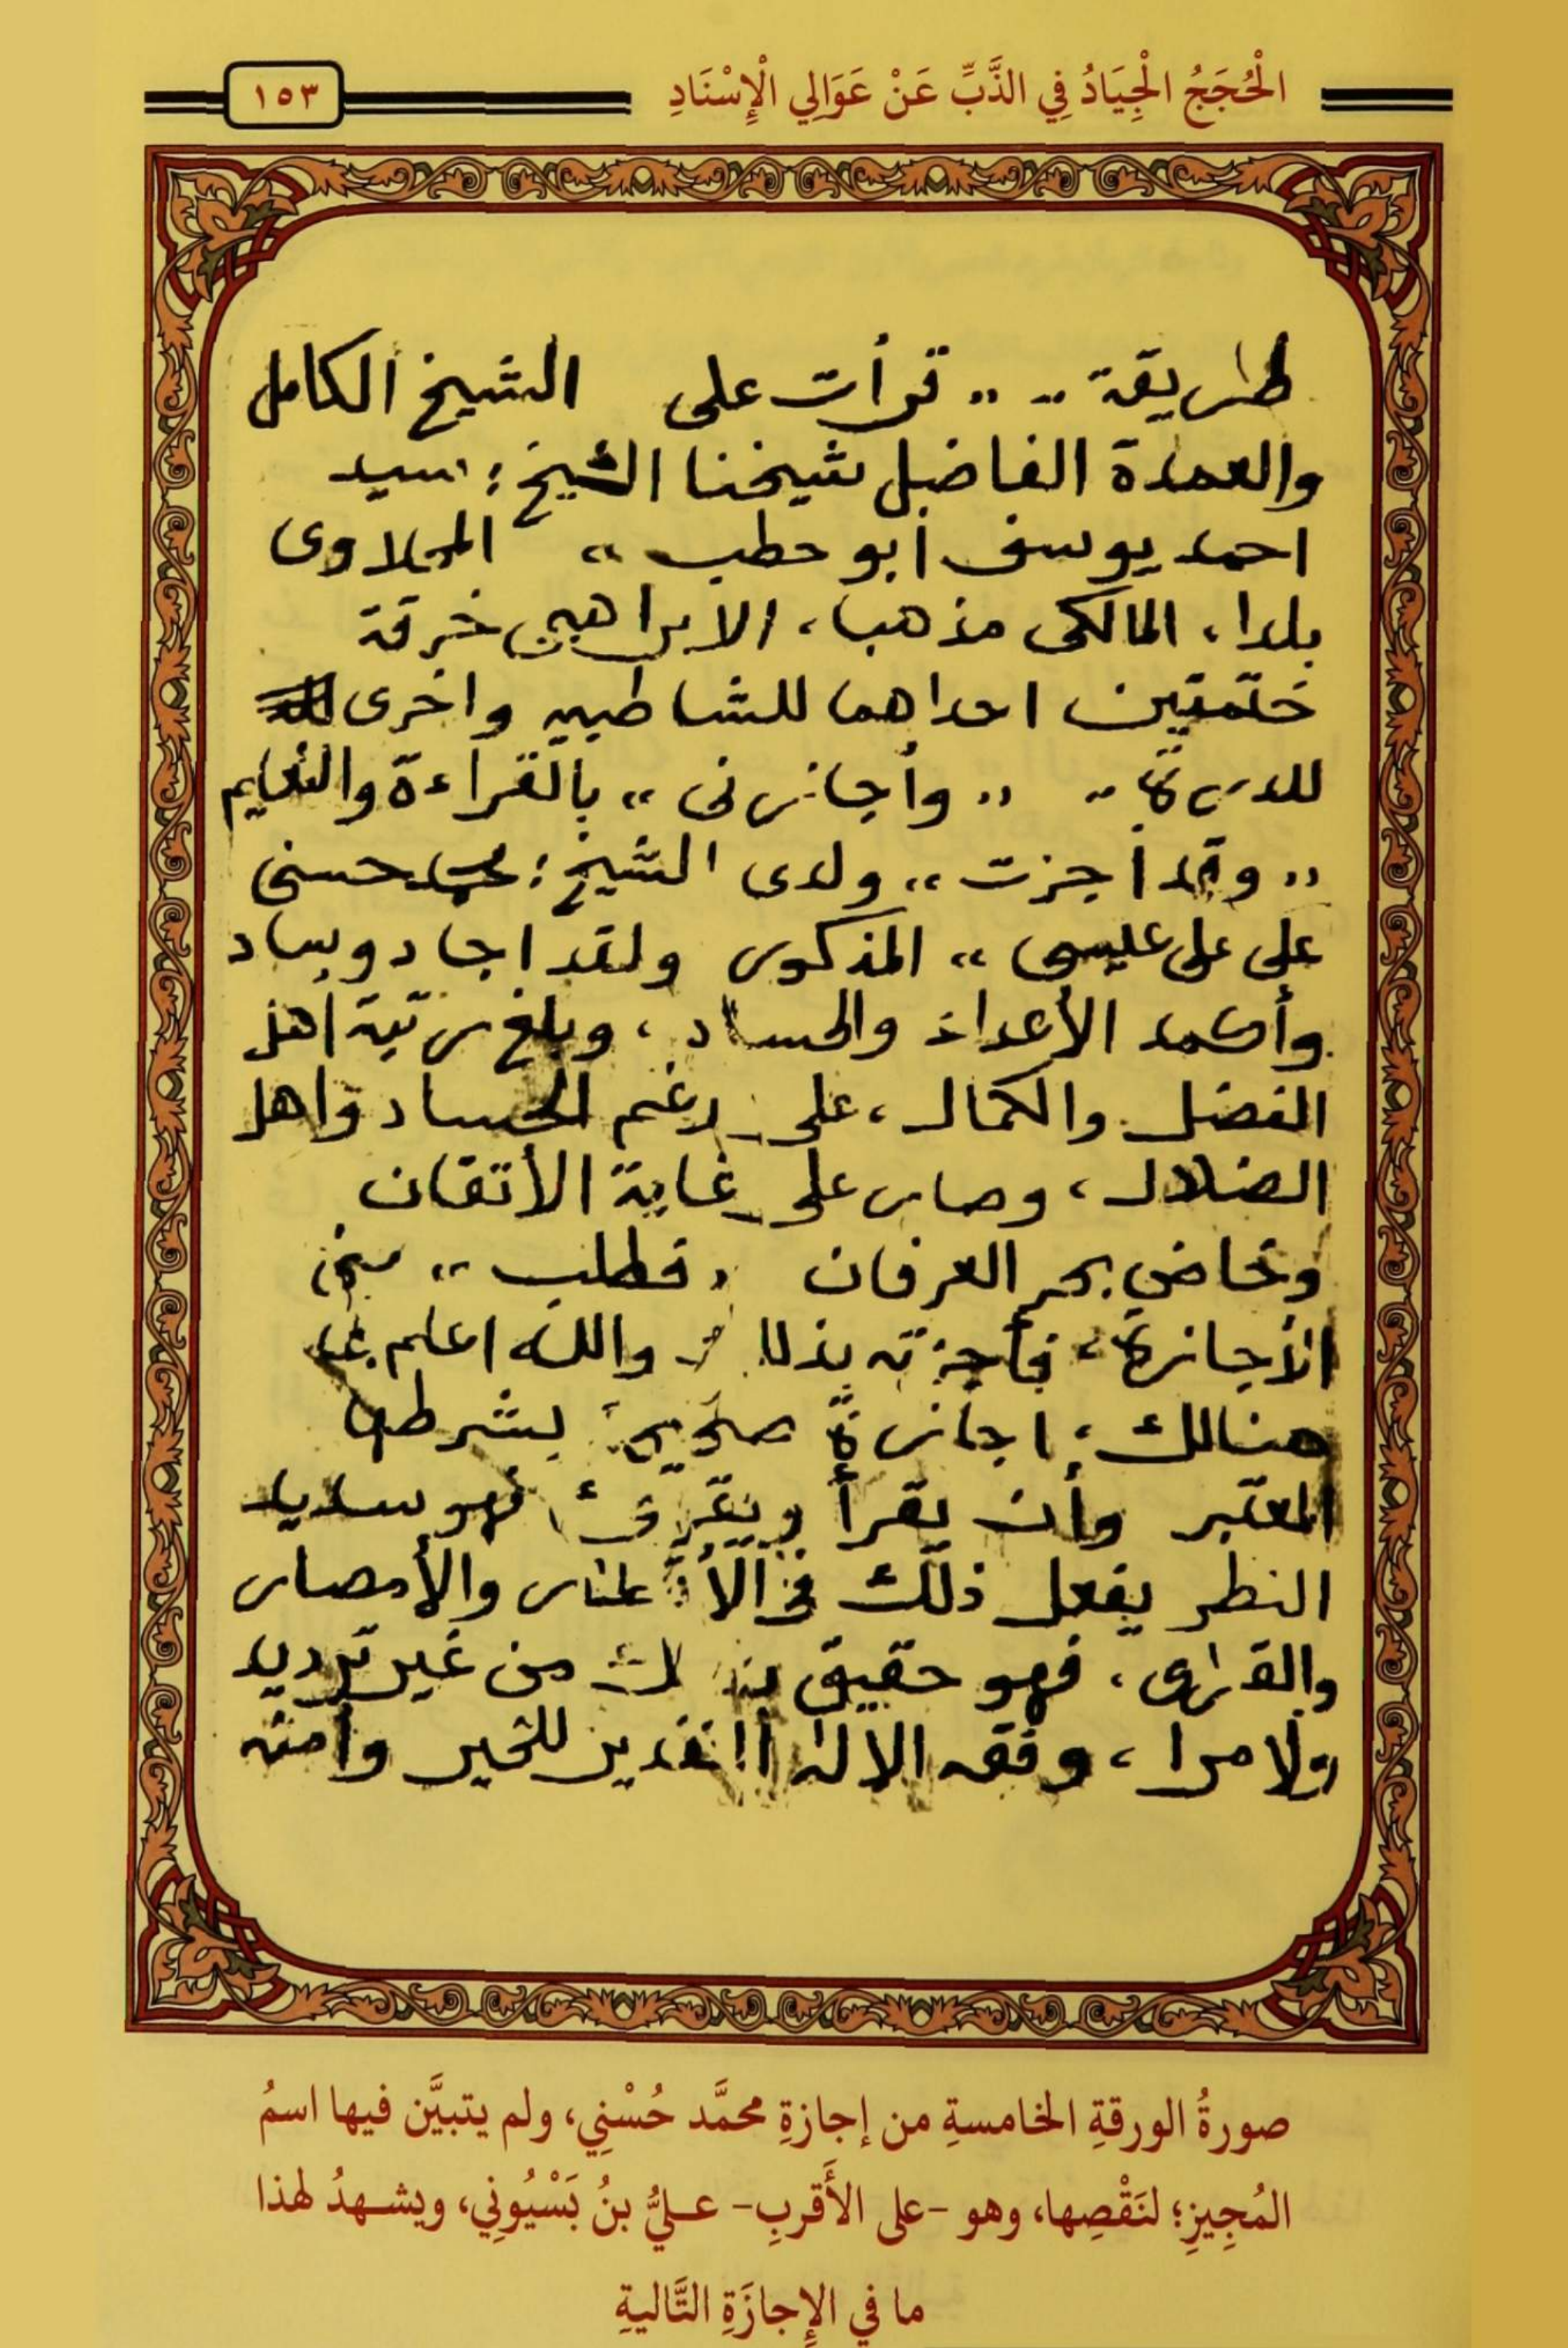 الْحُجَجُ الْجِيَادُ فِي الذَّبِّ عَنْ عَوَالِي الْإِسْنَادِ
١٥٣
طريقة .. ,, قرأت على الشيخ الكامل
والعمدة الفاضل شيخنا الشيخ : سيد
احمد يوسف ابو حطب ،، المحلاوى
بلدا ، المالكى مذهبا ، الابراهيمى خرقة
ختمتين احداهما للشاطبيه واخرى
للدرة .. ,, وأجازنى ،، بالقراءة والتعليم
,, وقد أجزت ،، ولدى الشيخ : محمد حسنى
على على عليسى ،، المذكور ولقد اجاد وساد
وأكمد الأعداء والحساد ، وبلغ رتبة اهل
الفضل والكمال ، على رغم الحساد واهل
الضلال ، وصار على غاية الأتقان
وخاض بحر العرفان ,, فطلب ،، منى
الأجازة ، فأجزته بذلك والله اعلم بما
هنالك ، اجازة صحيحة بشرطها
المعتبر وأن يقرأ ويقرئ ، فهو سديد
النظر يفعل ذلك فى الأقطار والأمصار
والقرى ، فهو حقيق بذلك من غير ترديد
ولا مرا ، وفقه الاله القدير للخير وأمنه
صورةُ الورقةِ الخامسةِ من إجازةِ محمَّد حُسْنِي، ولم يتبيَّن فيها اسمُ
المُجِيزِ؛ لنَقْصِها، وهو -على الأَقربِ- عليُّ بنُ بَسْيُونِي، ويشهدُ لهذا
ما في الإِجازَةِ التَّاليةِ